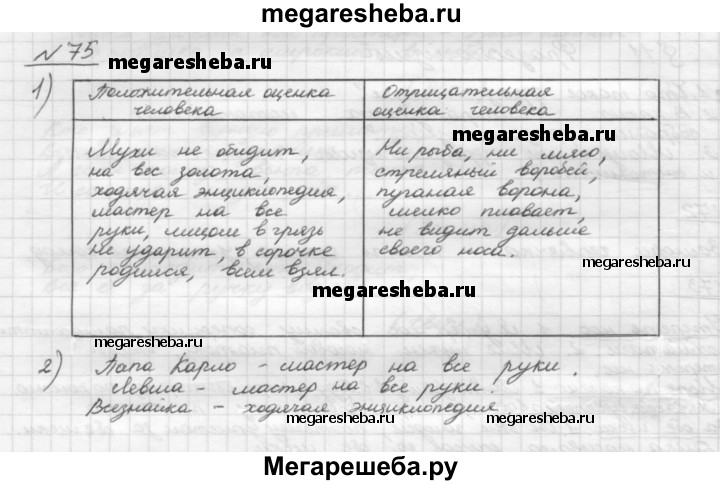 megaresheba.ru
№ 75
megaresheba.ru
1)
Положительная оценка
человека
Отрицательная
оценка человека
megaresheba.ru
Мухи не обидит,
на вес золота,
ходячая энциклопедия,
мастер на все
руки, лицом в грязь
не ударит, в сорочке
родился, всем взял.
Ни рыба, ни мясо,
стреляный воробей,
пуганая ворона,
мелко плавает,
не видит дальше
своего носа.
megaresheba.ru
megaresheba.ru
megaresheba.ru
2) Папа Карло - мастер на все руки.
Левша - мастер на все руки.
Всезнайка - ходячая энциклопедия
megaresheba.ru
Мегарешеба.ру